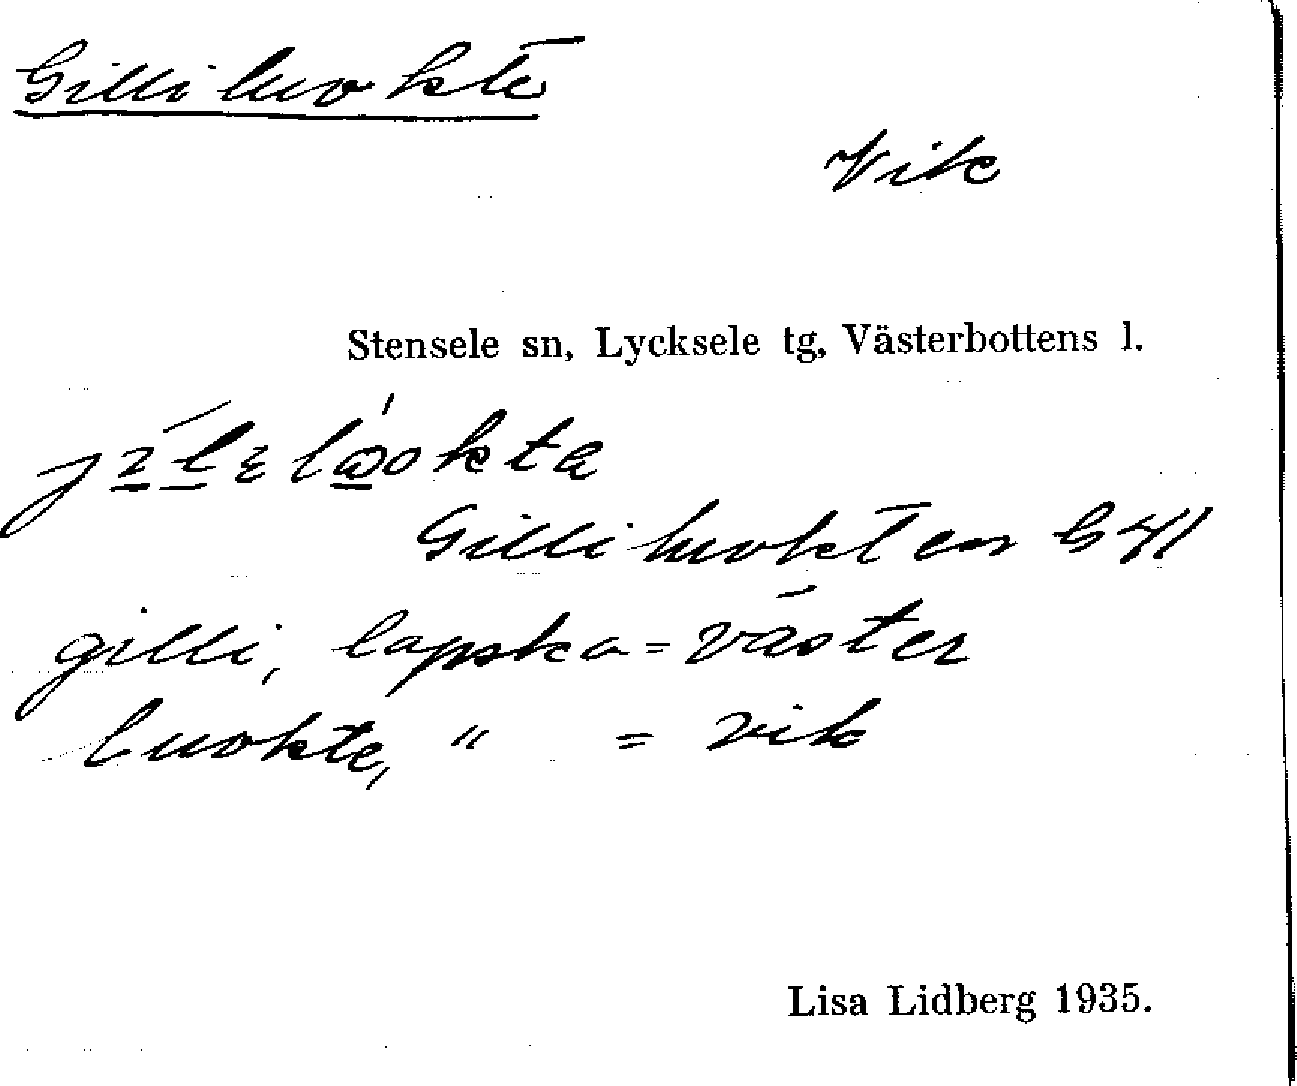 Gilliluokte
Vik
Stensele sn, Lycksele tg, Västerbottens l.
Gilliluokten G 41
gilli, lapska = väster
luokte, " = vik
Lisa Lidberg 1935.